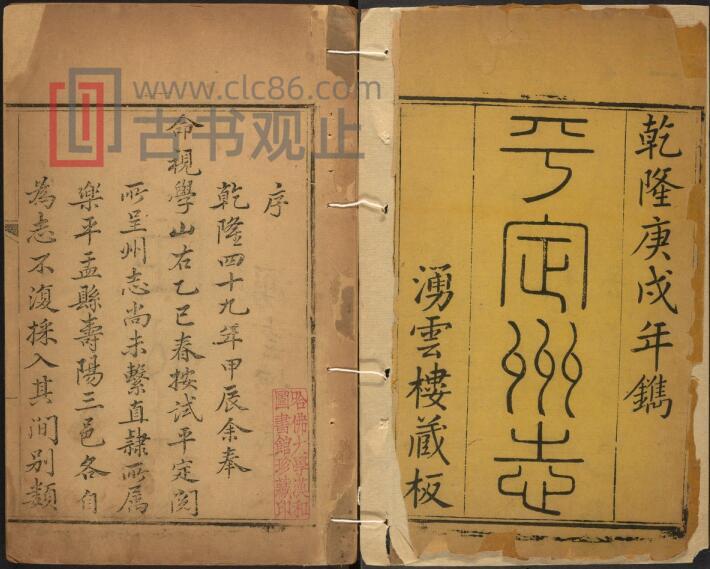 乾隆庚戌年鐫
平定州志
湧雲樓藏板
序
乾隆四十九年甲辰余奉
命視學山右乙巳春按試平定閱
所呈州志尚未繫直隸所屬
樂平盂縣壽陽三邑各自
為志不復採入其間別類
哈佛大學漢和
圖書館珍藏印
www.clc86.com
古书观止